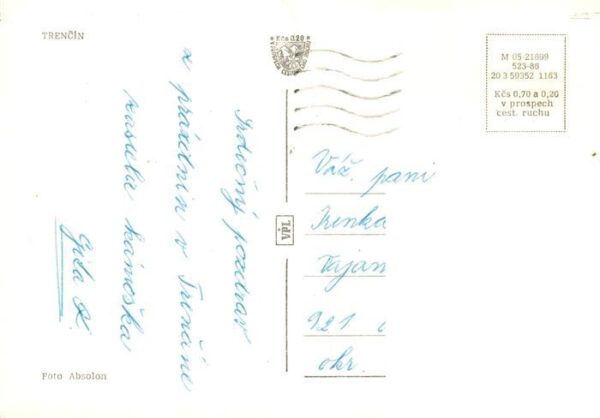 TRENČÍN
Kčs 0.20
M 05-21699
523-86
20 3 59352 1163
Kčs 0,70 a 0,20
v prospech
cest. ruchu
Srdečný pozdrav
z prázdnin v Trenčíne
kamoška
Gita K.
VDL
Váž. pani
Irenka
Vajan
921
okr.
Foto Absolon